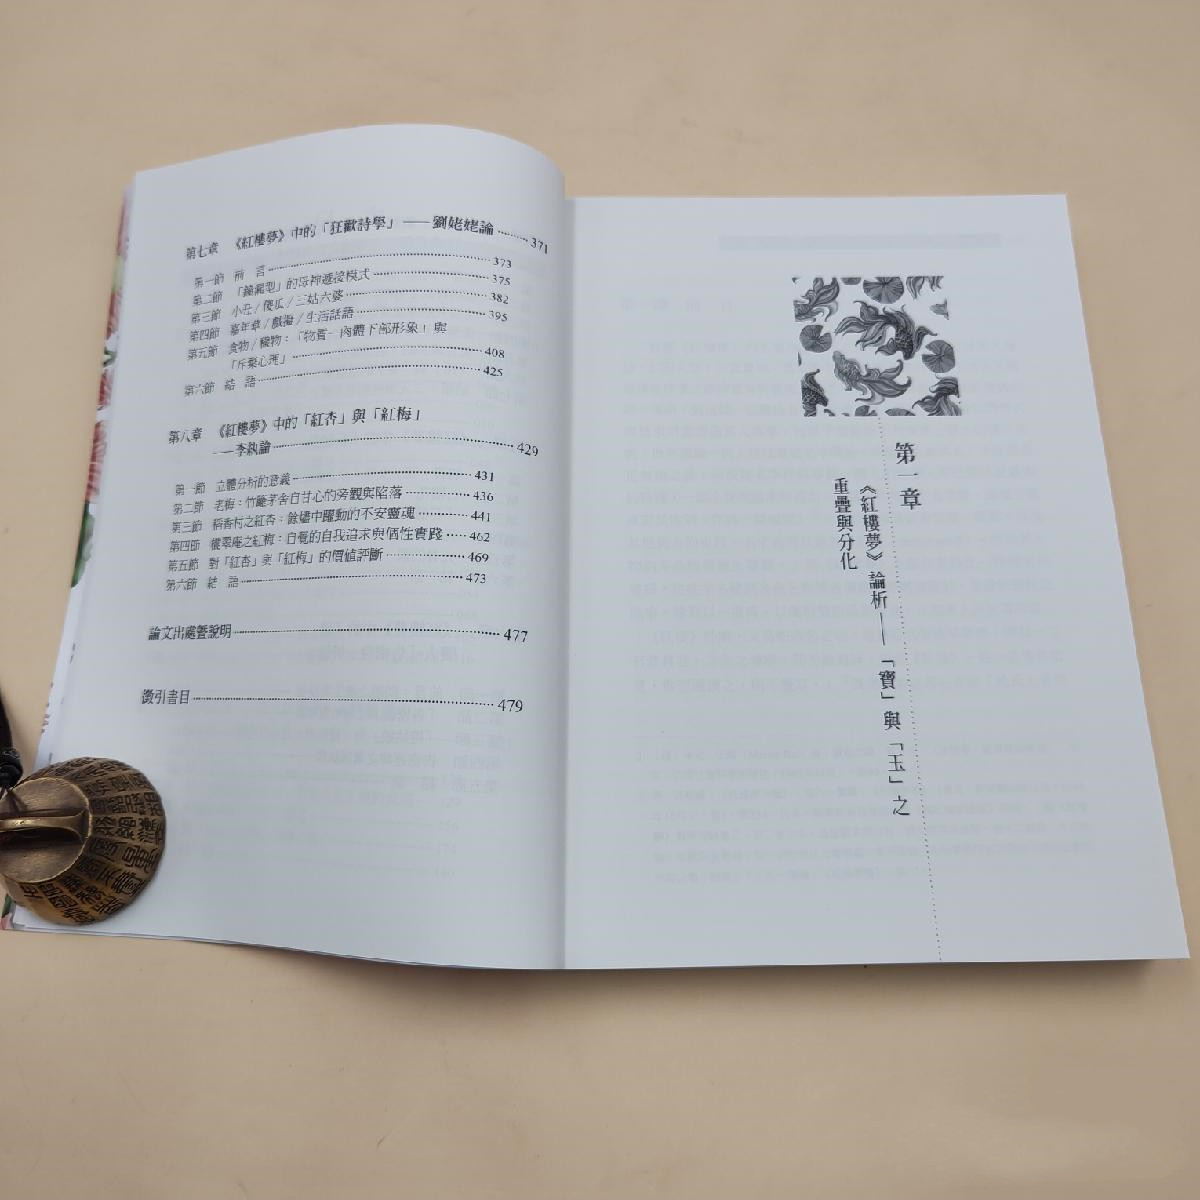 第七章 《紅樓夢》中的「狂歡詩學」——劉姥姥論 371
第一節 前言 373
第二節 「錦羅型」的母神遞接模式 375
第三節 小丑/傻瓜/三姑六婆 382
第四節 嘉年華/戲謔/生活話語 395
第五節 食物/穢物：「物質-肉體下部形象」與
「斥棄心理」 408
第六節 結語 425
第八章 《紅樓夢》中的「紅杏」與「紅梅」
——李紈論 429
第一節 立體分析的意義 431
第二節 老梅：竹籬茅舍自甘心的旁觀與陷落 436
第三節 稻香村之紅杏：餘燼中躍動的不安靈魂 441
第四節 櫳翠庵之紅梅：自覺的自我追求與個性實踐 462
第五節 對「紅杏」與「紅梅」的價值評斷 469
第六節 結語 473
論文出處暨說明 477
徵引書目 479
第一章
《紅樓夢》論析——「寶」與「玉」之
重疊與分化